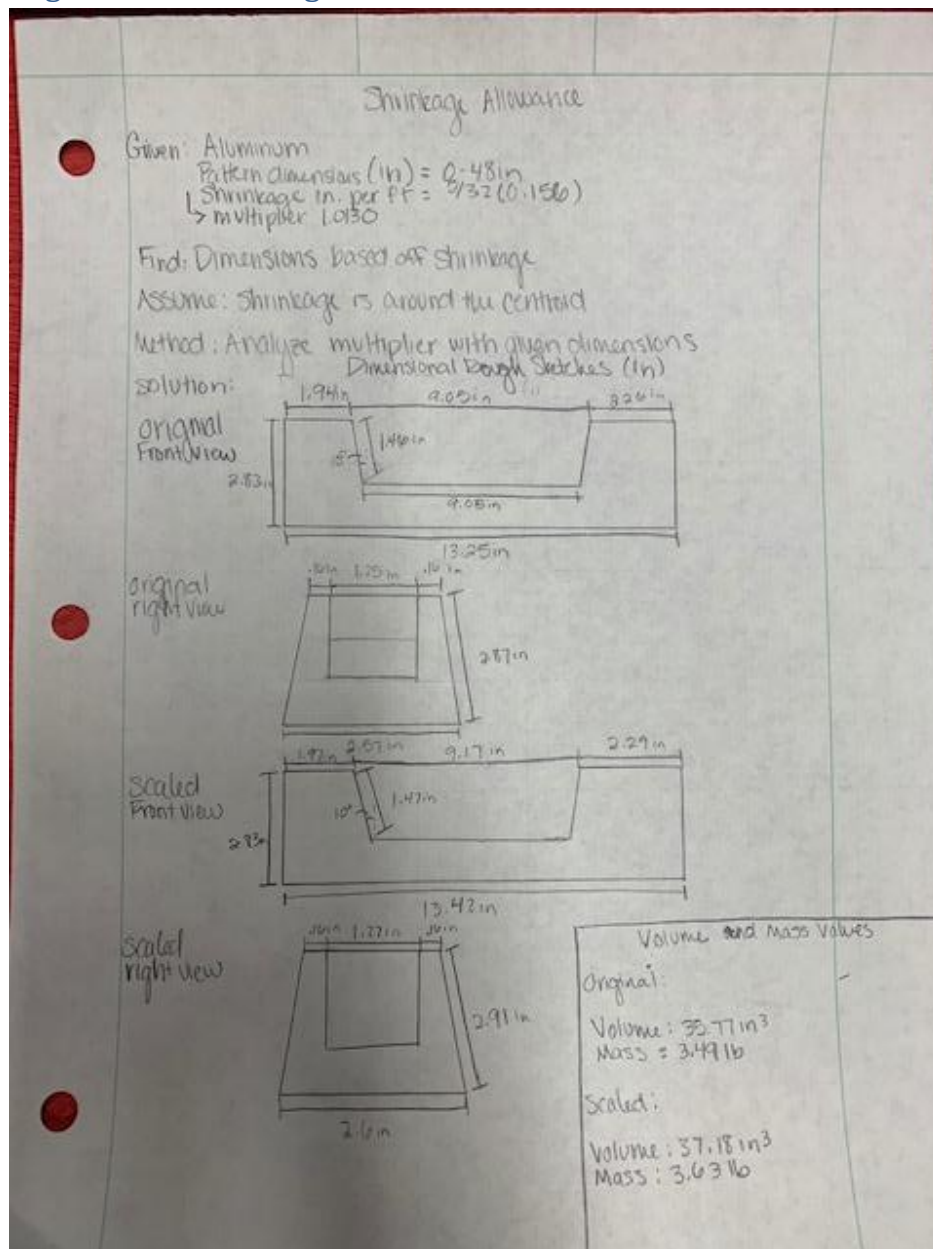 Shrinkage Allowance
Given: Aluminum
Pattern dimensions (in) = 0-48in
Shrinkage in. per ft = 5/32 (0.156)
multiplier 1.0130
Find: Dimensions based off shrinkage
Assume: shrinkage is around the centroid
Method: Analyze multiplier with given dimensions
Dimensional Rough Sketches (in)
solution:
1.94in 9.05in 2.26in
original
Front View
1.46in
2.83in
9.05in
13.25in
original
right view
.16in 1.25in .16in
2.87in
2.57in
1.97in 9.17in 2.29in
scaled
Front View
1.47in
10°
2.83
13.42in
scaled
right view
.16in 1.27in .16in
2.91in
2.6in
Volume and Mass Values
Original:
Volume: 35.77in³
Mass = 3.49lb
Scaled:
Volume: 37.18in³
Mass: 3.63lb